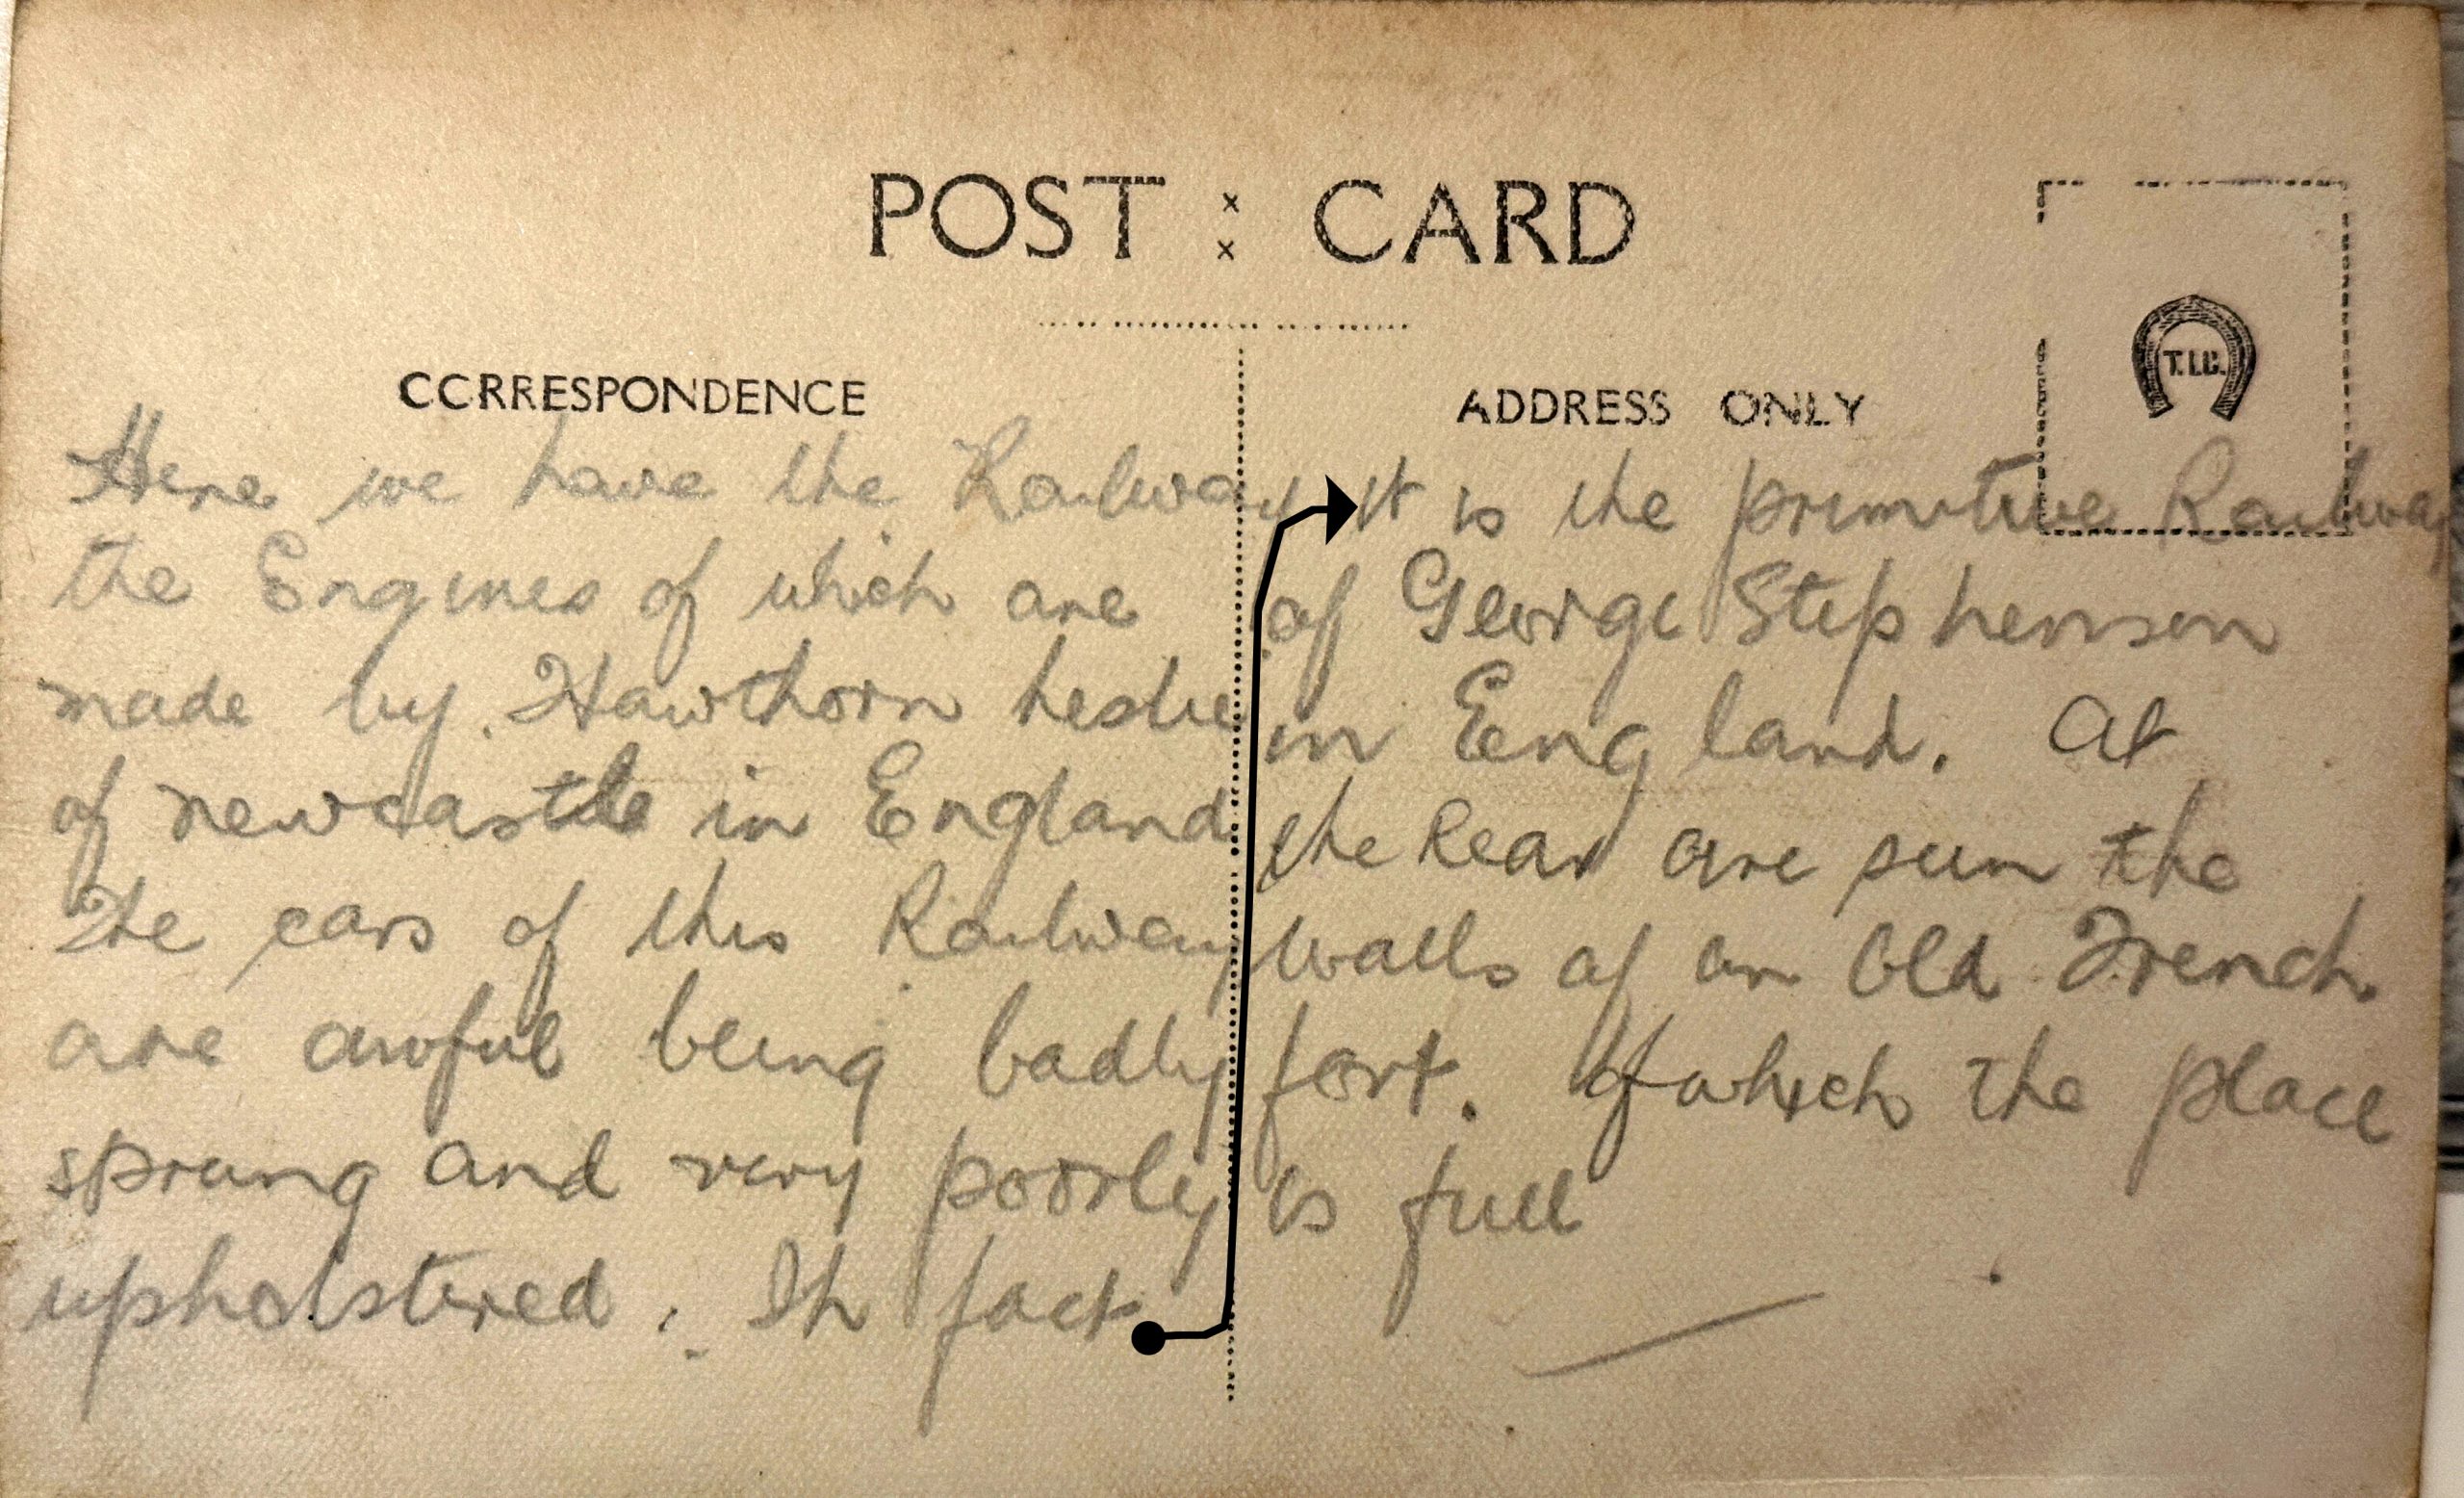 POST : CARD
CORRESPONDENCE
Here we have the Railway
the Engines of which are
made by Hawthorn Leslie
of newcastle in England
The cars of this Railway
are awful being badly
sprung and very poorly
upholstered. In fact
ADDRESS ONLY
T.I.C.
it is the primitive Railway
of George Stephenson
in England. At
the Rear are seen the
walls of an Old French
fort. Of which the place
is full